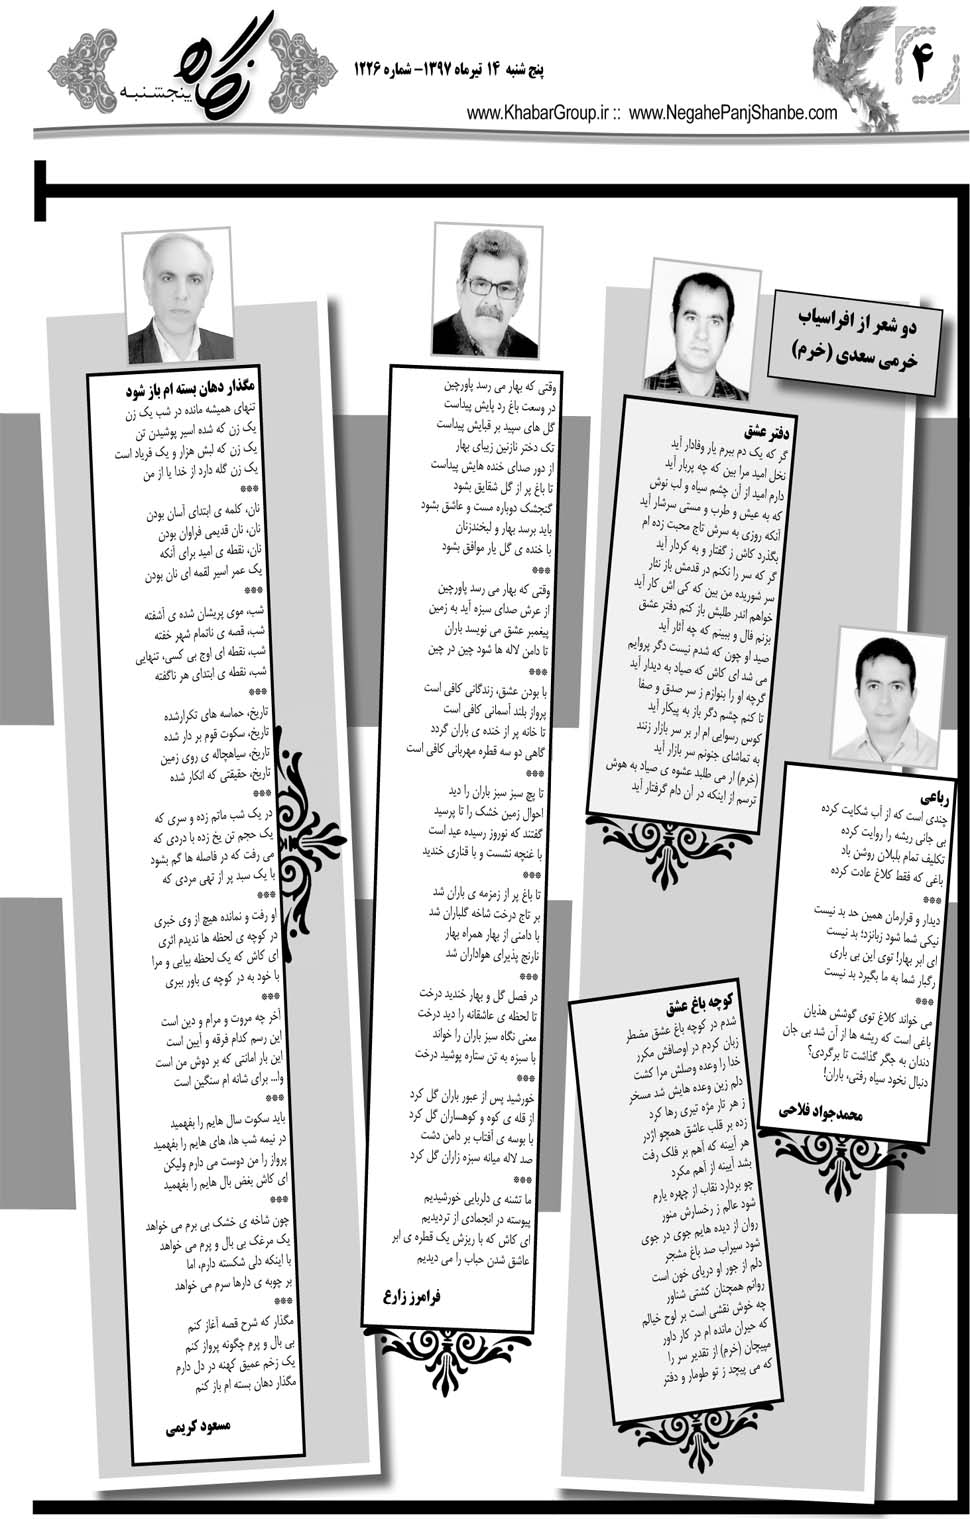 ۴
پنج شنبه ۱۴ تیرماه ۱۳۹۷- شماره ۱۲۲۶
www.KhabarGroup.ir :: www.NegahePanjShanbe.com
نگاه
پنجشنبه
دو شعر از افراسیاب
خرمی سعدی (خرم)
دفتر عشق
گر که یک دم ببرم یار وفادار آید
نخل امید مرا بین که چه پربار آید
دارم امید از آن چشم سیاه و لب نوش
که به عیش و طرب و مستی سرشار آید
آنکه روزی به سرش تاج محبت زده ام
بگذرد کاش ز گفتار و به کردار آید
گر که سر را نکنم در قدمش باز نثار
سر شوریده من بین که کی اش کار آید
خواهم اندر طلبش باز کنم دفتر عشق
بزنم فال و ببینم که چه آثار آید
صید او چون که شدم نیست دگر پروایم
می شد ای کاش که صیاد به دیدار آید
گرچه او را بنوازم ز سر صدق و صفا
تا کنم چشم دگر باز به پیکار آید
کوس رسوایی ام ار بر سر بازار زنند
به تماشای جنونم سر بازار آید
(خرم) ار می طلبد عشوه ی صیاد به هوش
ترسم از اینکه در آن دام گرفتار آید
کوچه باغ عشق
شدم در کوچه باغ عشق مضطر
زبان کردم در اوصافش مکرر
خدا را وعده وصلش مرا کشت
دلم زین وعده هایش شد مسخر
ز هر تار مژه تیری رها کرد
زده بر قلب عاشق همچو اژدر
هر آیینه که آهم بر فلک رفت
بشد آیینه از آهم مکرد
چو بردارد نقاب از چهره یارم
شود عالم ز رخسارش منور
روان از دیده هایم جوی در جوی
شود سیراب صد باغ مشجر
دلم از جور او دریای خون است
روانم همچنان کشتی شناور
چه خوش نقشی است بر لوح خیالم
که حیران مانده ام در کار داور
مپیچان (خرم) از تقدیر سر را
که می پیچد ز تو طومار و دفتر
رباعی
چندی است که از آب شکایت کرده
بی جانی ریشه را روایت کرده
تکلیف تمام بلبلان روشن باد
باغی که فقط کلاغ عادت کرده
***
دیدار و قرارمان همین حد بد نیست
نیکی شما شود زبانزد؛ بد نیست
ای ابر بهار! توی این بی باری
رگبار شما به ما بگیرد بد نیست
***
می خواند کلاغ توی گوشش هذیان
باغی است که ریشه ها از آن شد بی جان
دندان به جگر گذاشت تا برگردی؟
دنبال نخود سیاه رفتی، باران!
محمدجواد فلاحی
وقتی که بهار می رسد پاورچین
در وسعت باغ رد پایش پیداست
گل های سپید بر قبایش پیداست
تک دختر نازنین زیبای بهار
از دور صدای خنده هایش پیداست
تا باغ پر از گل شقایق بشود
گنجشک دوباره مست و عاشق بشود
باید برسد بهار و لبخندزنان
با خنده ی گل یار موافق بشود
***
وقتی که بهار می رسد پاورچین
از عرش صدای سبزه آید به زمین
پیغمبر عشق می نویسد باران
تا دامن لاله ها شود چین در چین
***
با بودن عشق، زندگانی کافی است
پرواز بلند آسمانی کافی است
تا خانه پر از خنده ی باران گردد
گاهی دو سه قطره مهربانی کافی است
***
تا پچ سبز سبز باران را دید
احوال زمین خشک را تا پرسید
گفتند که نوروز رسیده عید است
با غنچه نشست و با قناری خندید
***
تا باغ پر از زمزمه ی باران شد
بر تاج درخت شاخه گلباران شد
با دامنی از بهار همراه بهار
نارنج پذیرای هواداران شد
***
در فصل گل و بهار خندید درخت
تا لحظه ی عاشقانه را دید درخت
معنی نگاه سبز باران را خواند
با سبزه به تن ستاره پوشید درخت
***
خورشید پس از عبور باران گل کرد
از قله ی کوه و کوهساران گل کرد
با بوسه ی آفتاب بر دامن دشت
صد لاله میانه سبزه زاران گل کرد
***
ما تشنه ی دلربایی خورشیدیم
پیوسته در انجمادی از تردیدیم
ای کاش که با ریزش یک قطره ی ابر
عاشق شدن حباب را می دیدیم
فرامرز زارع
مگذار دهان بسته ام باز شود
تنهای همیشه مانده در شب یک زن
یک زن که شده اسیر پوشیدن تن
یک زن که لبش هزار و یک فریاد است
یک زن گله دارد از خدا یا از من
***
نان، کلمه ی ابتدای آسان بودن
نان، نان قدیمی فراوان بودن
نان، نقطه ی امید برای آنکه
یک عمر اسیر لقمه ای نان بودن
***
شب، موی پریشان شده ی آشفته
شب، قصه ی ناتمام شهر خفته
شب، نقطه ای اوج بی کسی، تنهایی
شب، نقطه ی ابتدای هر ناگفته
***
تاریخ، حماسه های تکرارشده
تاریخ، سکوت قوم بر دار شده
تاریخ، سیاهچاله ی روی زمین
تاریخ، حقیقتی که انکار شده
***
در یک شب ماتم زده و سری که
یک حجم تن یخ زده با دردی که
می رفت که در فاصله ها گم بشود
با یک سبد پر از تهی مردی که
***
او رفت و نمانده هیچ از وی خبری
در کوچه ی لحظه ها ندیدم اثری
ای کاش که یک لحظه بیایی و مرا
با خود به در کوچه ی باور ببری
***
آخر چه مروت و مرام و دین است
این رسم کدام فرقه و آیین است
این بار امانتی که بر دوش من است
وا... برای شانه ام سنگین است
***
باید سکوت سال هایم را بفهمید
در نیمه شب ها، های هایم را بفهمید
پرواز را من دوست می دارم ولیکن
ای کاش بغض بال هایم را بفهمید
***
چون شاخه ی خشک بی برم می خواهد
یک مرغک بی بال و پرم می خواهد
با اینکه دلی شکسته دارم، اما
بر چوبه ی دارها سرم می خواهد
***
مگذار که شرح قصه آغاز کنم
بی بال و پرم چگونه پرواز کنم
یک زخم عمیق کهنه در دل دارم
مگذار دهان بسته ام باز کنم
مسعود کریمی